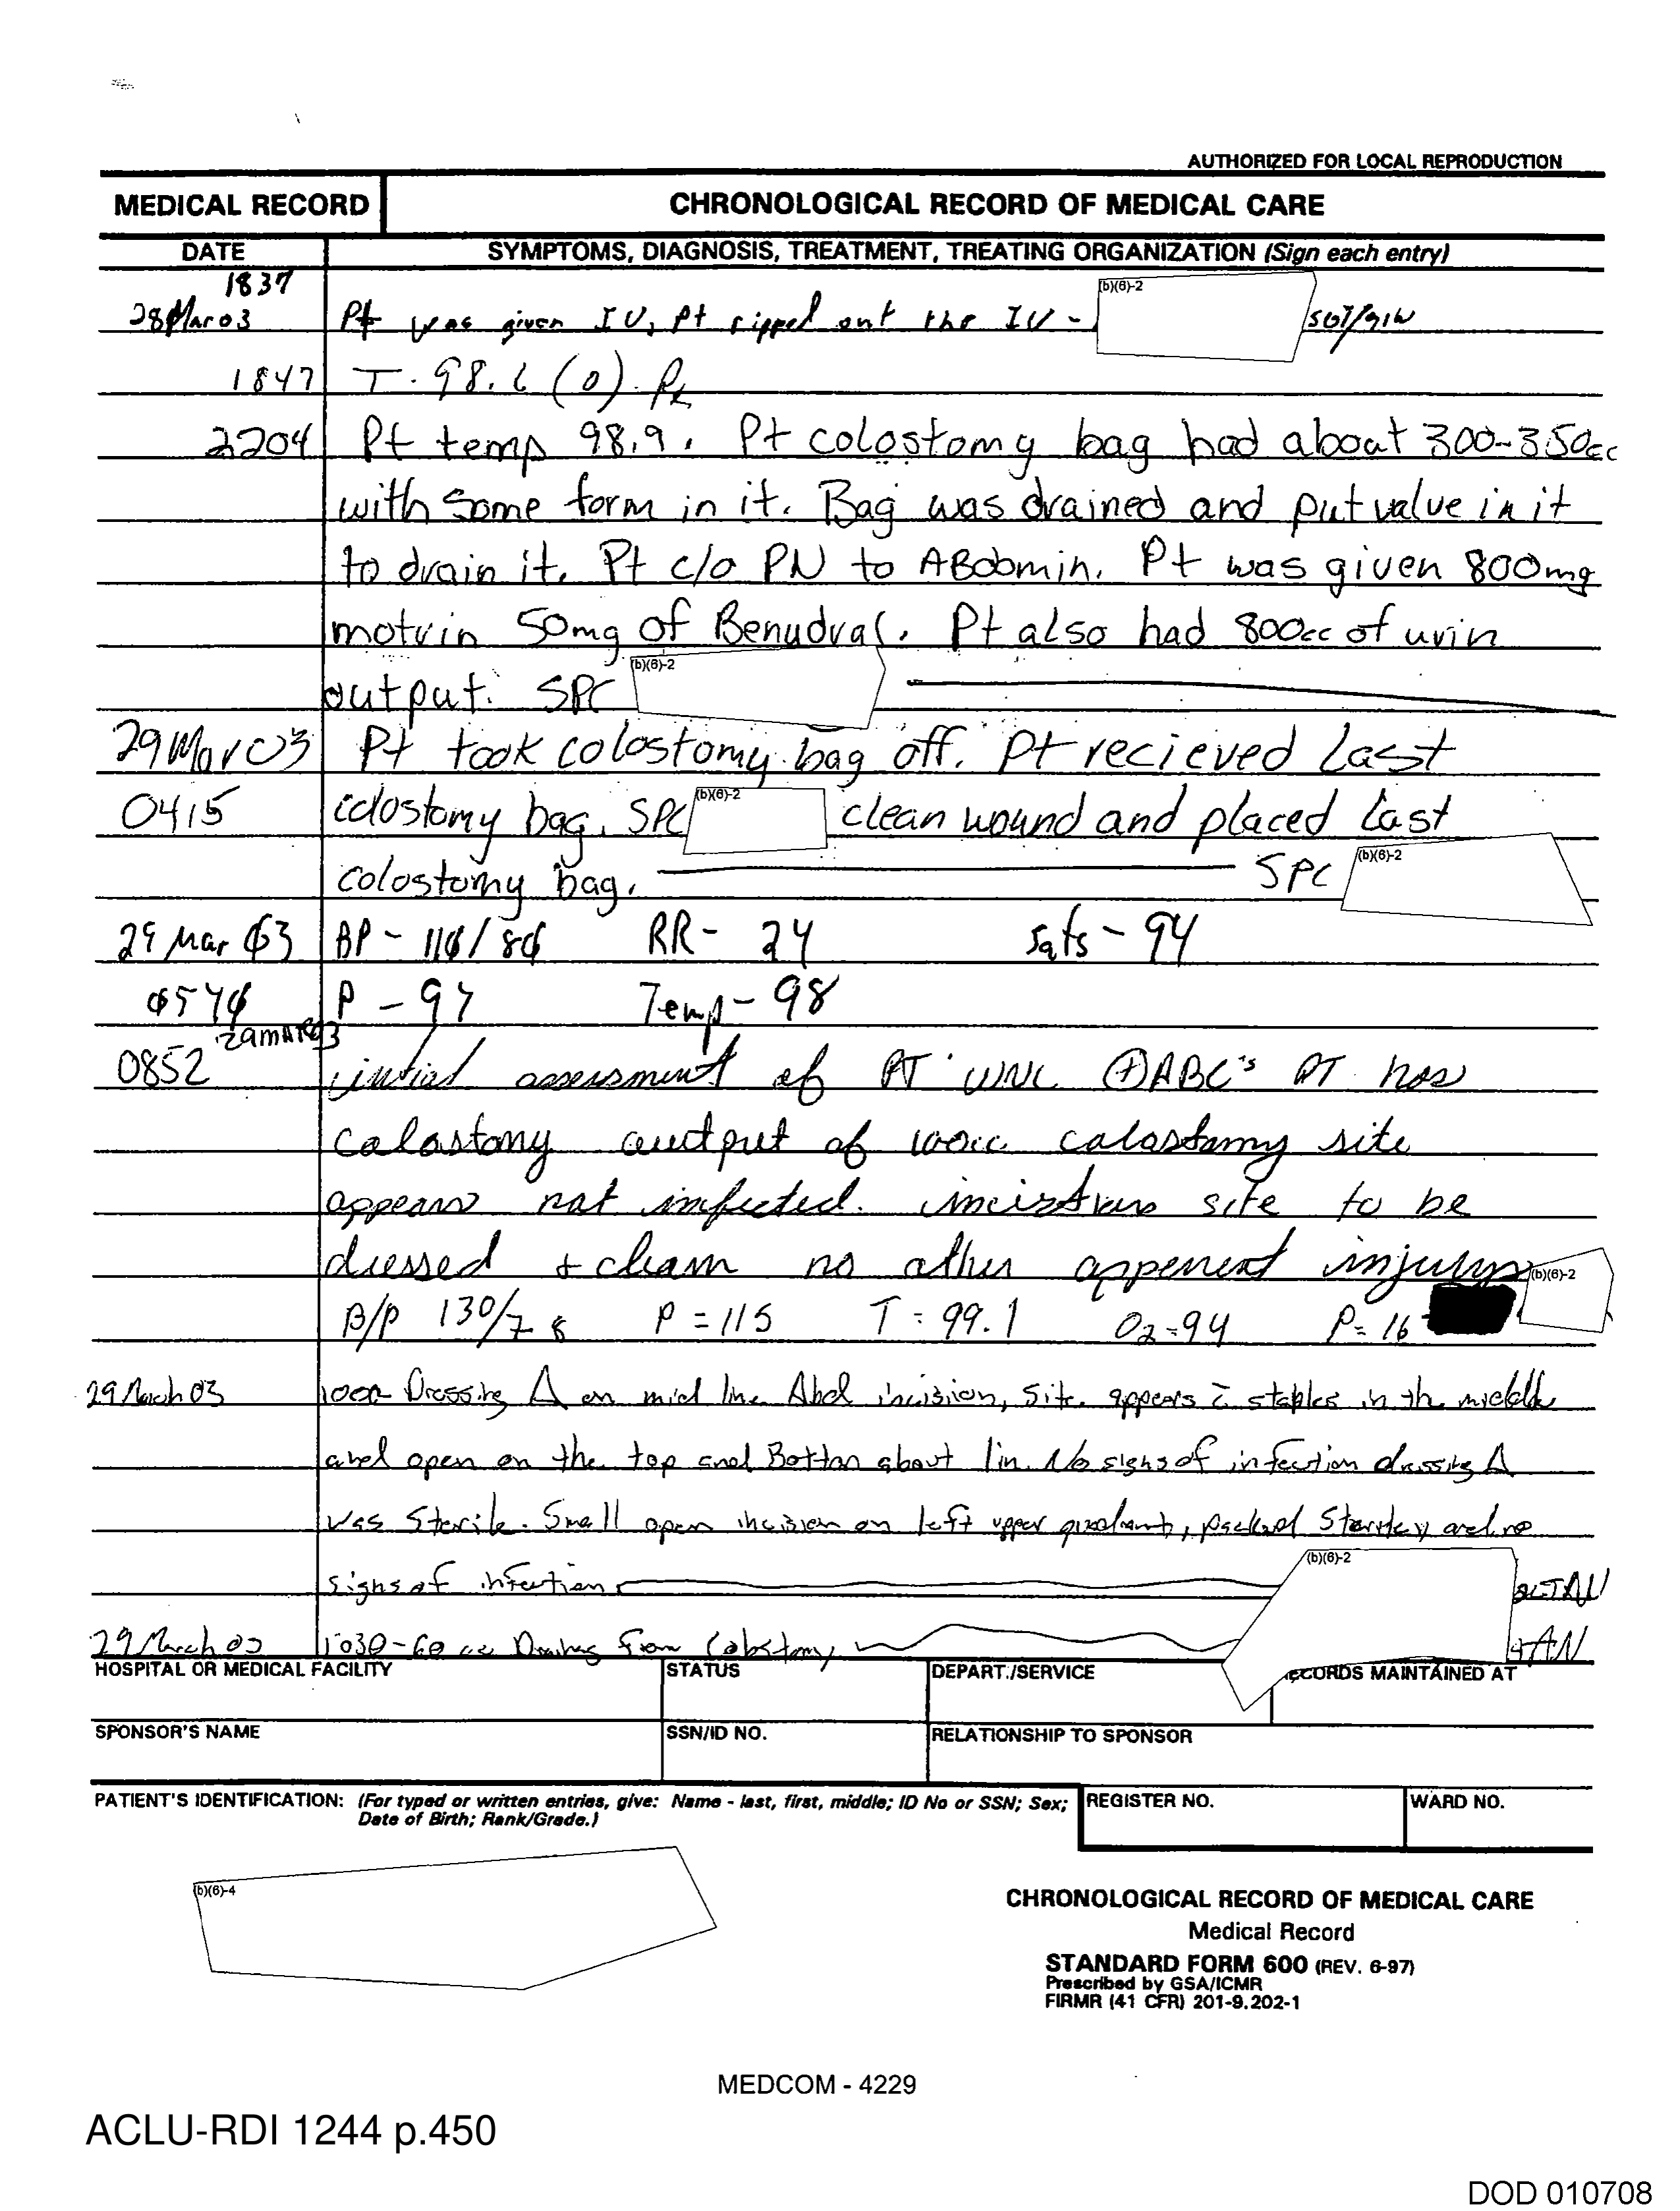 AUTHORIZED FOR LOCAL REPRODUCTION
MEDICAL RECORD
CHRONOLOGICAL RECORD OF MEDICAL CARE
DATE
SYMPTOMS, DIAGNOSIS, TREATMENT, TREATING ORGANIZATION (Sign each entry)
1837
28Mar03 Pt was given IV, Pt ripped out the IV - (b)(6)-2 SGT/91W
1847 T. 98.6 (o)
2204 Pt temp 98.9. Pt colostomy bag had about 300-350cc
with some form in it. Bag was drained and put value in it
to drain it. Pt c/o PN to ABdomin. Pt was given 800mg
motrin 50mg of Benudral. Pt also had 800cc of urin
output. SPC (b)(6)-2
29Mar03 Pt took colostomy bag off. Pt recieved Last
0415 colostomy bag. SPC (b)(6)-2 clean wound and placed Last
colostomy bag. SPC (b)(6)-2
29 Mar 03 BP - 110/80 RR - 24 Sats - 94
0540 P - 97 Temp - 98
29MAR03
0852 initial assessment of PT WNL ⊕ABC's PT has
calastomy output of 100cc calastamy site
appears not infected. site to be
dressed + clean no other apperent injurys (b)(6)-2
B/P 130/78 P = 115 T = 99.1 O2=94 P= 16
29 March 03 1000 Dressing Δ on mid line Abd incision, Site appears c̄ staples in the middle
and open on the top and Bottom about 1in. No signs of infection dressing Δ
was Sterile. Small open incision on left upper quadrant, packed Steriley and no
signs of infection (b)(6)-2 2LTAN
29 March 03 1030-60 cc from Colostomy
HOSPITAL OR MEDICAL FACILITY
STATUS
DEPART./SERVICE
RECORDS MAINTAINED AT
SPONSOR'S NAME
SSN/ID NO.
RELATIONSHIP TO SPONSOR
PATIENT'S IDENTIFICATION: (For typed or written entries, give: Name - last, first, middle; ID No or SSN; Sex;
Date of Birth; Rank/Grade.)
REGISTER NO.
WARD NO.
(b)(6)-4
CHRONOLOGICAL RECORD OF MEDICAL CARE
Medical Record
STANDARD FORM 600 (REV. 6-97)
Prescribed by GSA/ICMR
FIRMR (41 CFR) 201-9.202-1
MEDCOM - 4229
ACLU-RDI 1244 p.450
DOD 010708